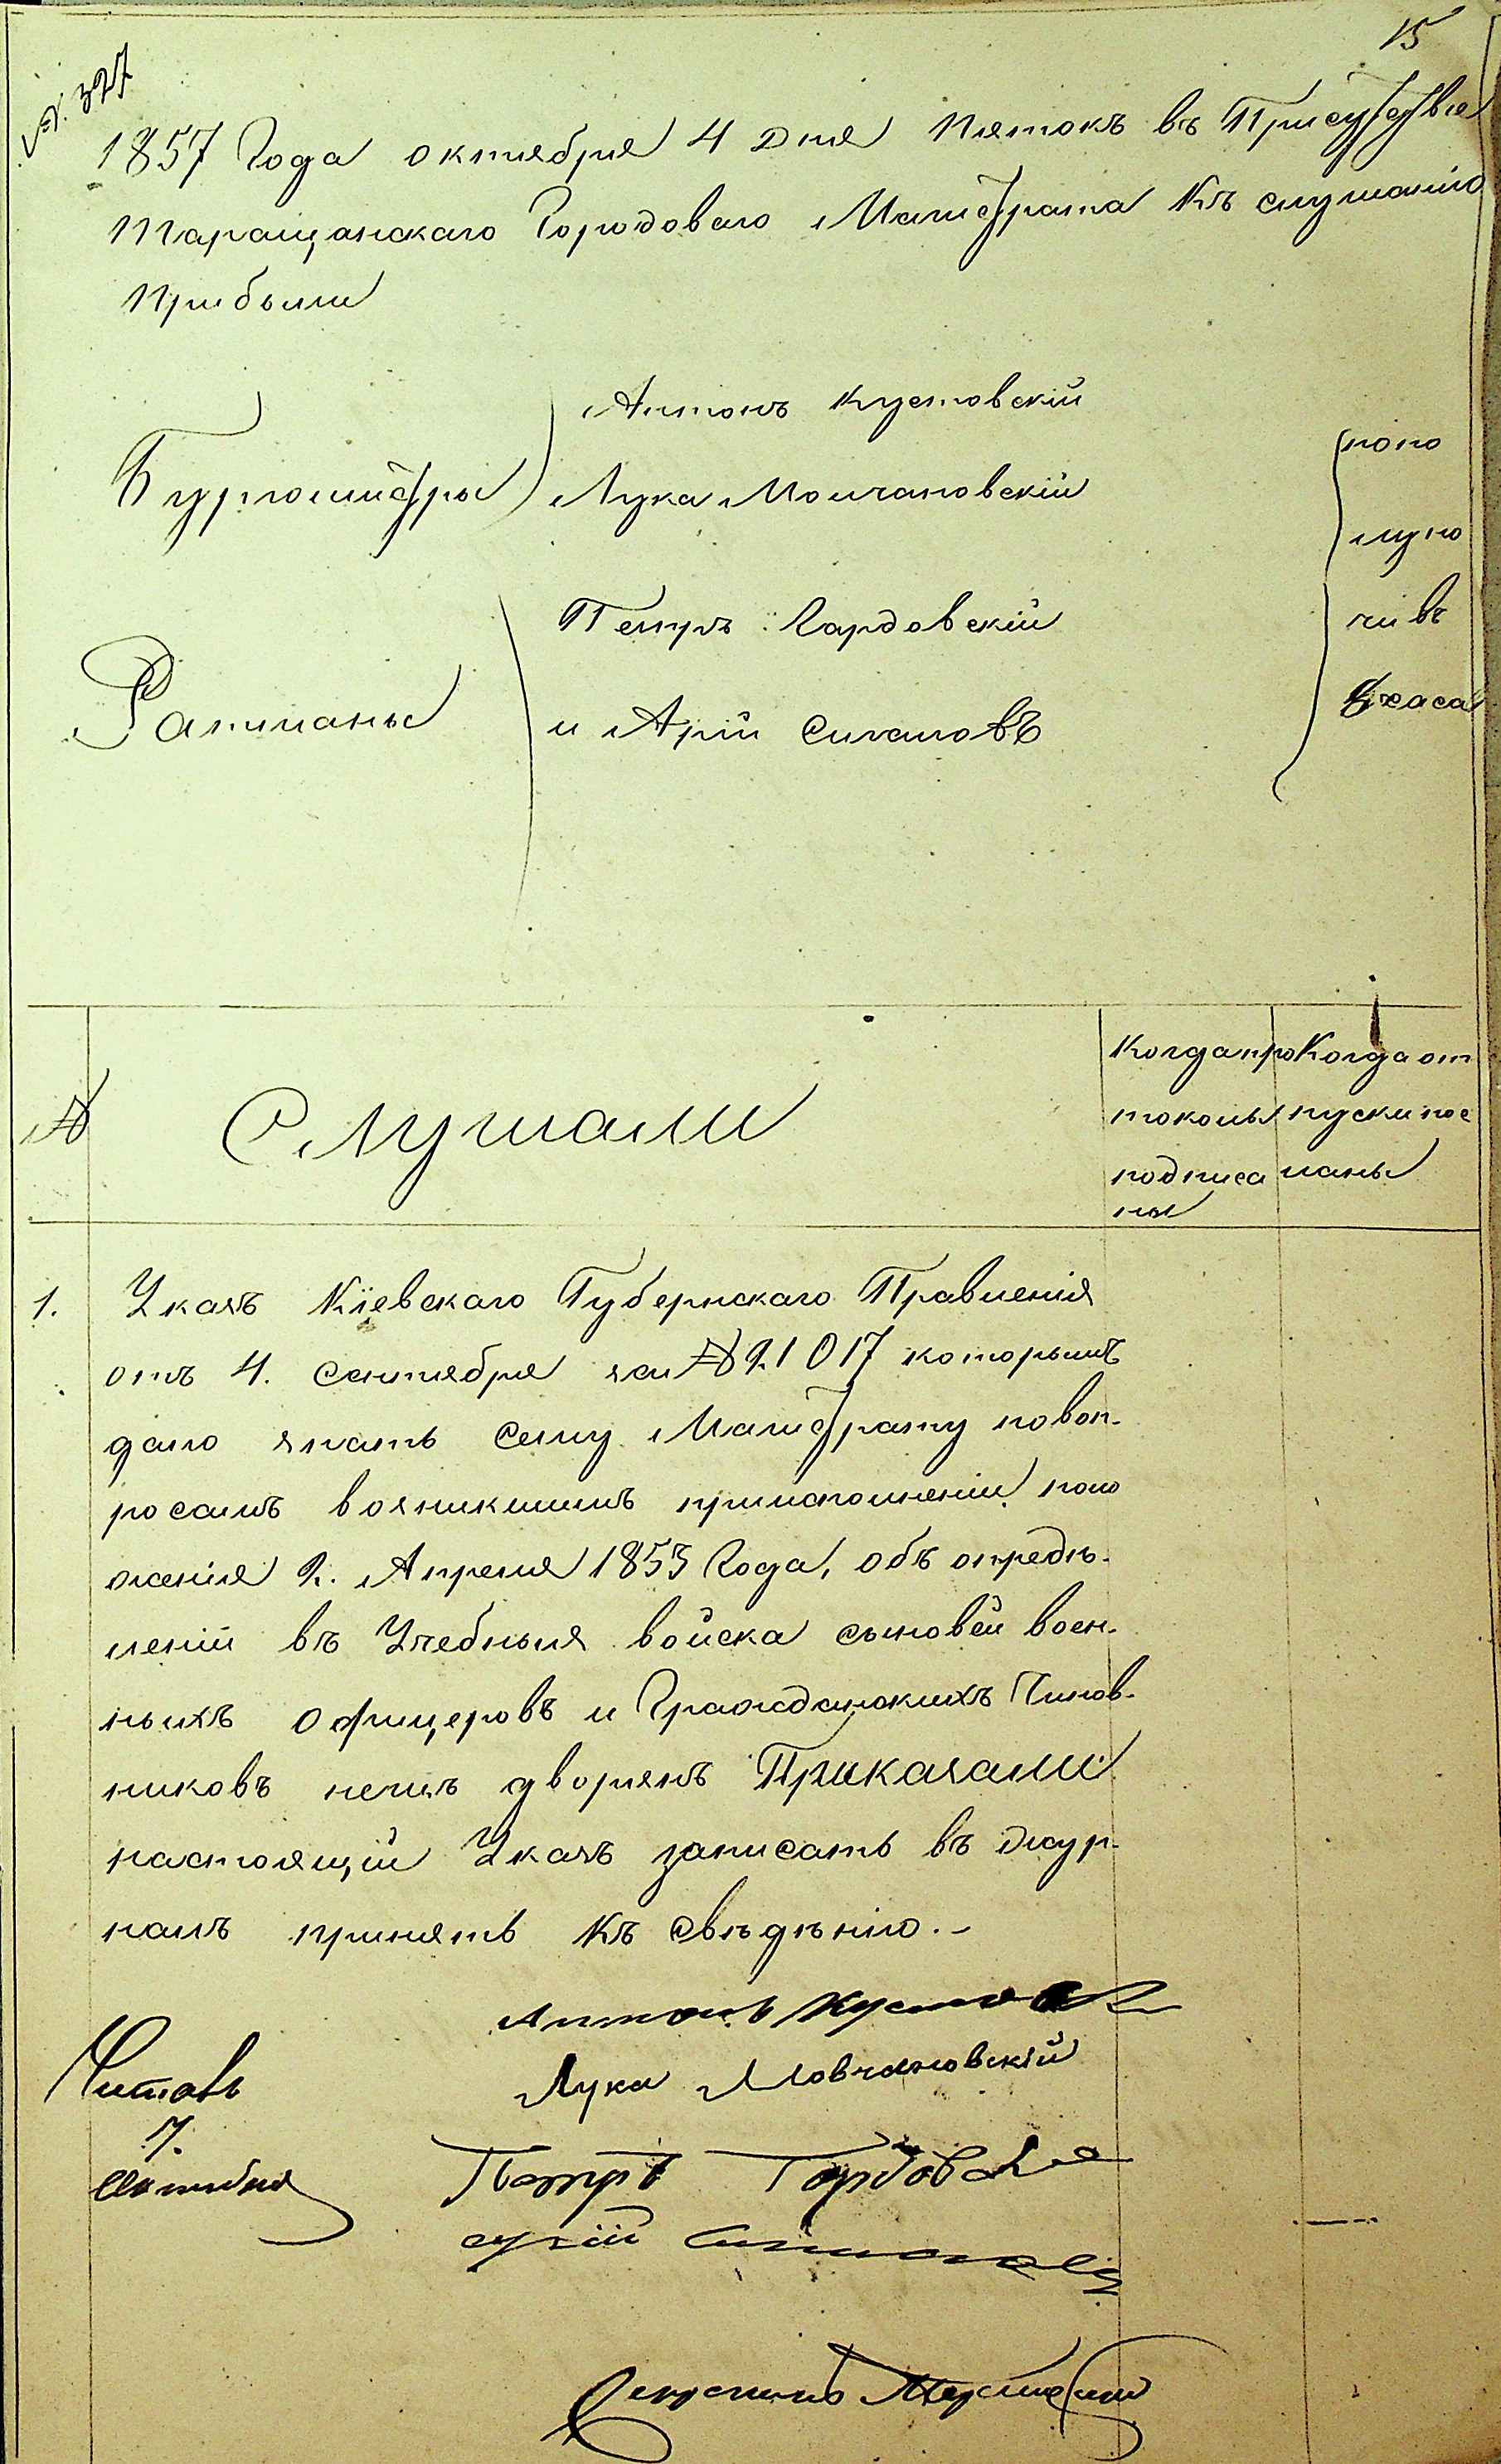 15
№. 327
1857 Года октября 4 дня Пятокъ въ Присуствіе
Таращанскаго Городоваго Магистрата Къ слушанію
Прибыли
Антонъ Кустовскій
Бургомистры Лука Молчановскій
Петръ Гардовскій
Ратманы и Арій
попо
лудно
чивъ
часа
№ Слушали
Когда про
токолы
подписа
ны
Когда от
пуски пос
ланы
1. Указъ Кіевскаго Губернскаго Правленія
отъ 4. сентября за № 21017 которымъ
дано знать сему Магистрату повоп-
росамъ возникшимъ приисполненіи поло
женія 2. Апреля 1853 Года, объ опредѣ-
леніи въ Учебныя войска сыновей воен-
ныхъ офицеровъ и Гражданскихъ Чинов-
никовъ неизъ дворянъ Приказали
настоящій Указъ записать въ жур-
налъ принять Къ свѣдѣнію. -
Антонъ
Лука Мовчановскій
Читалъ
7.
Октября
Петръ
Арій
Секретарь